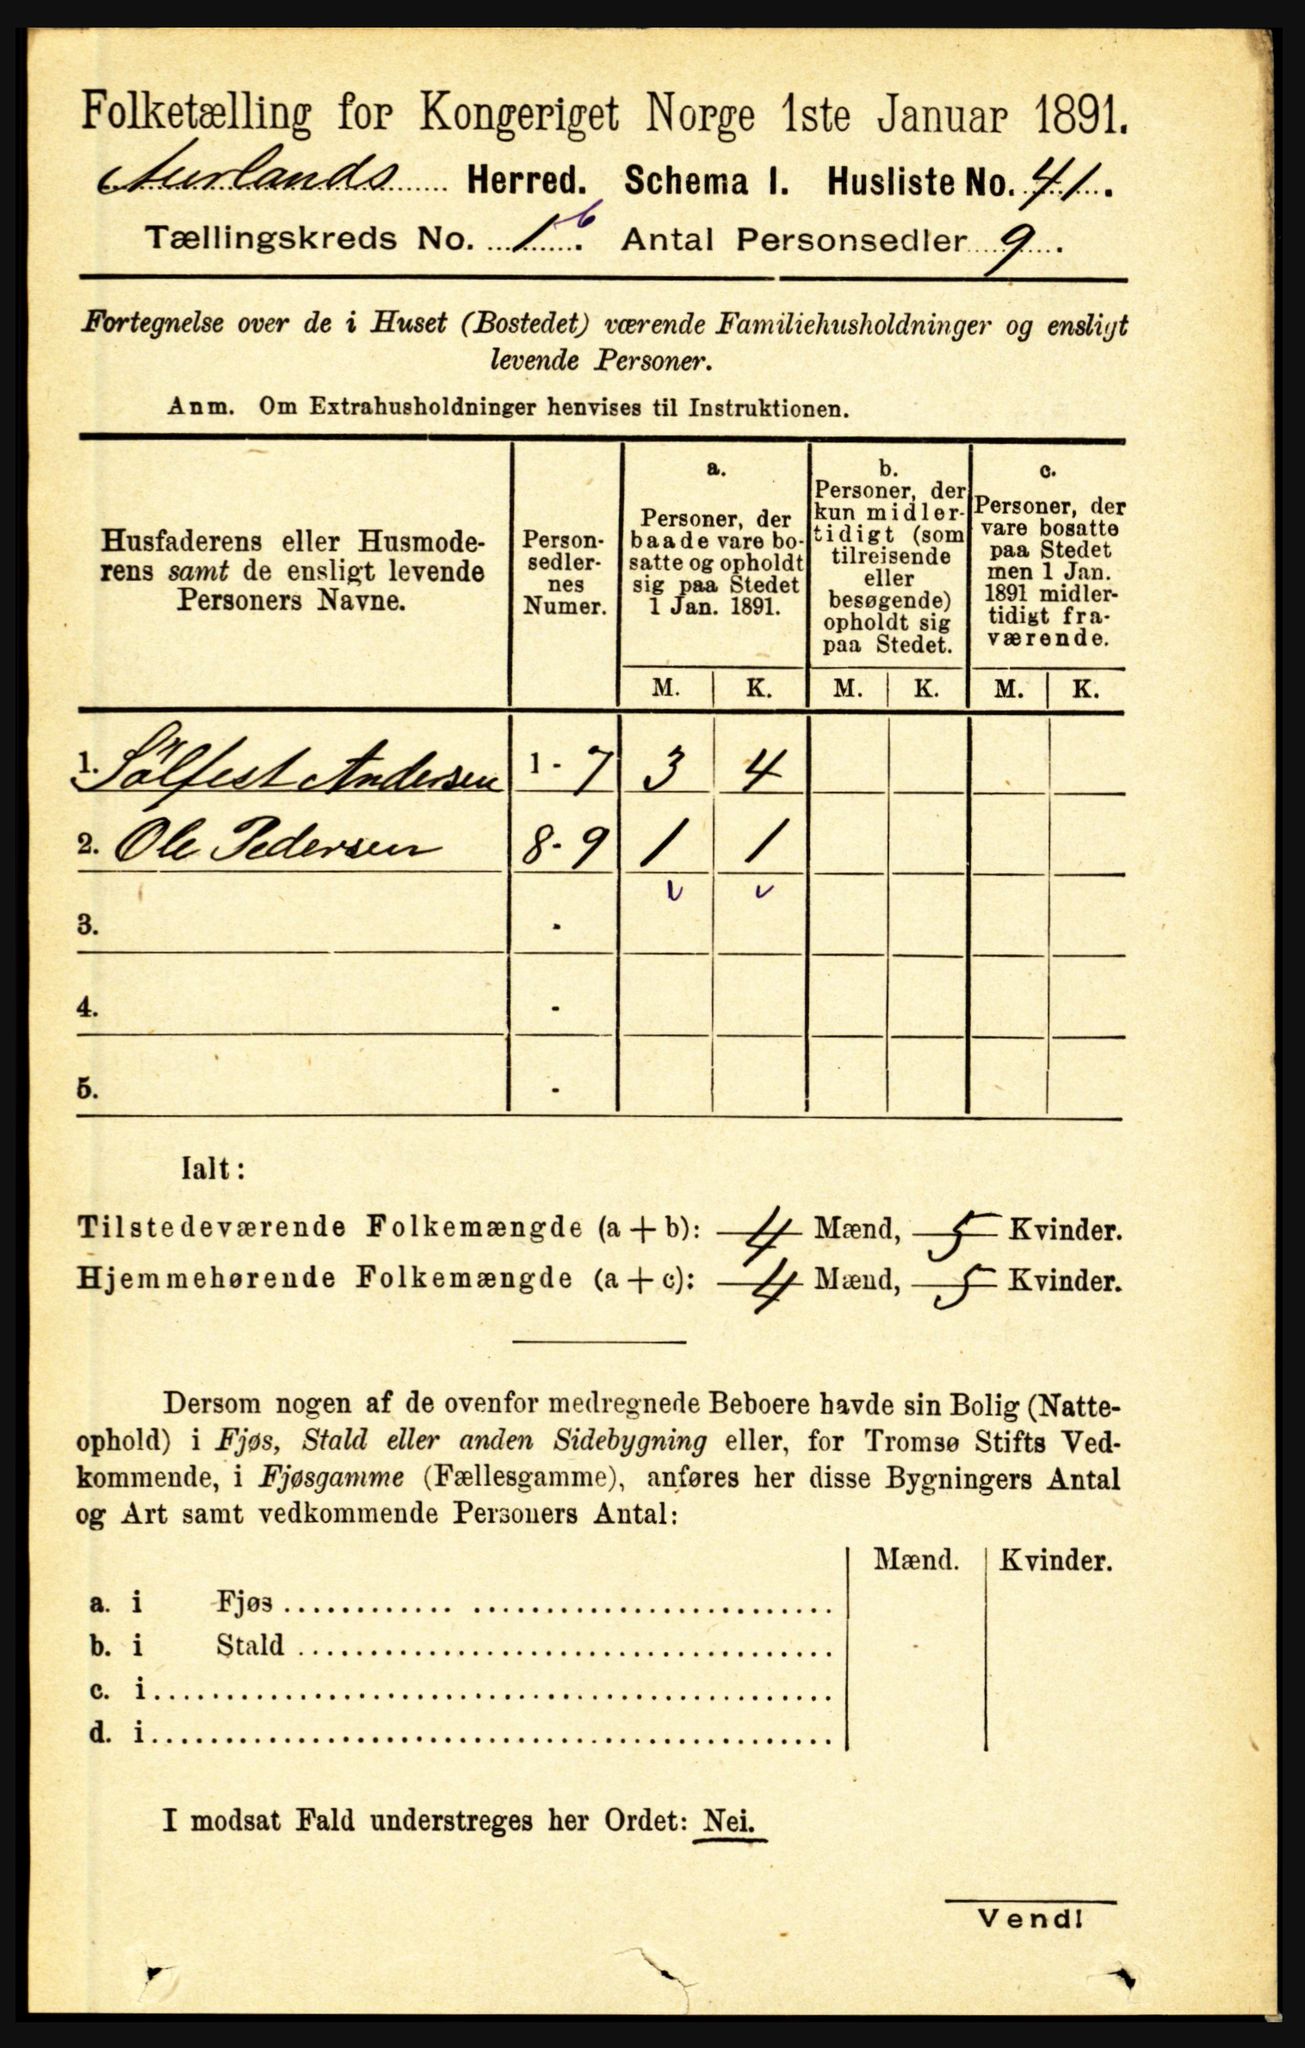 Folketælling for Kongeriget Norge 1ste Januar 1891.
Aurlands Herred. Schema 1. Husliste No. 41.
Tællingskreds No. 1b. Antal Personsedler 9.
Fortegnelse over de i Huset (Bostedet) værende Familiehusholdninger og ensligt
levende Personer.
Anm. Om Extrahusholdninger henvises til Instruktionen.
Husfaderens eller Husmode-
rens samt de ensligt levende
Personers Navne.
Person-
sedler-
nes
Numer.
a.
Personer, der
baade vare bo-
satte og opholdt
sig paa Stedet
1 Jan. 1891.
b.
Personer, der
kun midler-
tidigt (som
tilreisende
eller
besøgende)
opholdt sig
paa Stedet.
c.
Personer, der
vare bosatte
paa Stedet
men 1 Jan.
1891 midler-
tidigt fra-
værende.
M. K. M. K. M. K.
1. Sölfest Andersen 1 - 7 3 4
2. Ole Pedersen 8 - 9 1 1
3. -
4. -
5. -
Ialt:
Tilstedeværende Folkemængde (a + b): 4 Mænd, 5 Kvinder.
Hjemmehørende Folkemængde (a + c): 4 Mænd, 5 Kvinder.
Dersom nogen af de ovenfor medregnede Beboere havde sin Bolig (Natte-
ophold) i Fjøs, Stald eller anden Sidebygning eller, for Tromsø Stifts Ved-
kommende, i Fjøsgamme (Fællesgamme), anføres her disse Bygningers Antal
og Art samt vedkommende Personers Antal:
Mænd. Kvinder.
a. i Fjøs
b. i Stald
c. i
d. i
I modsat Fald understreges her Ordet: Nei.
Vend!